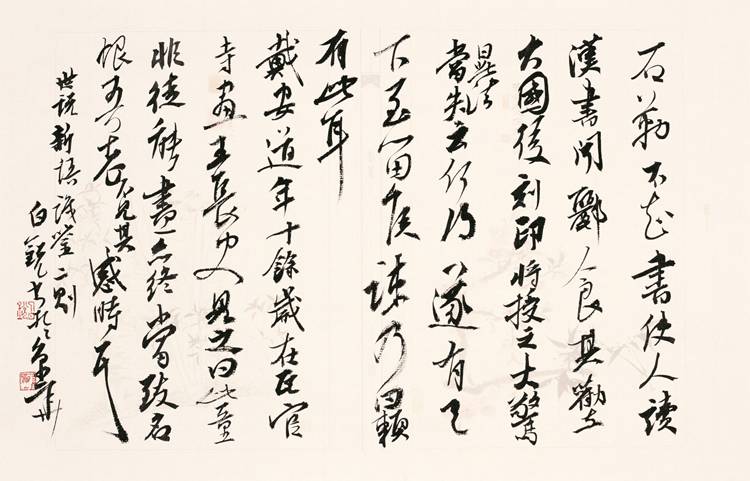 石勒不知書使人讀
漢書聞酈食其勸立
六國後刻印將授之大驚
曰此法當失云何得遂有天
下至留侯諫乃曰賴
有此耳
戴安道年十餘歲在瓦官
寺畫王長史見之曰此童
非徒能畫亦終當致名
恨吾老不見其盛時耳
世說新語識鑒二則
白銳书於京華